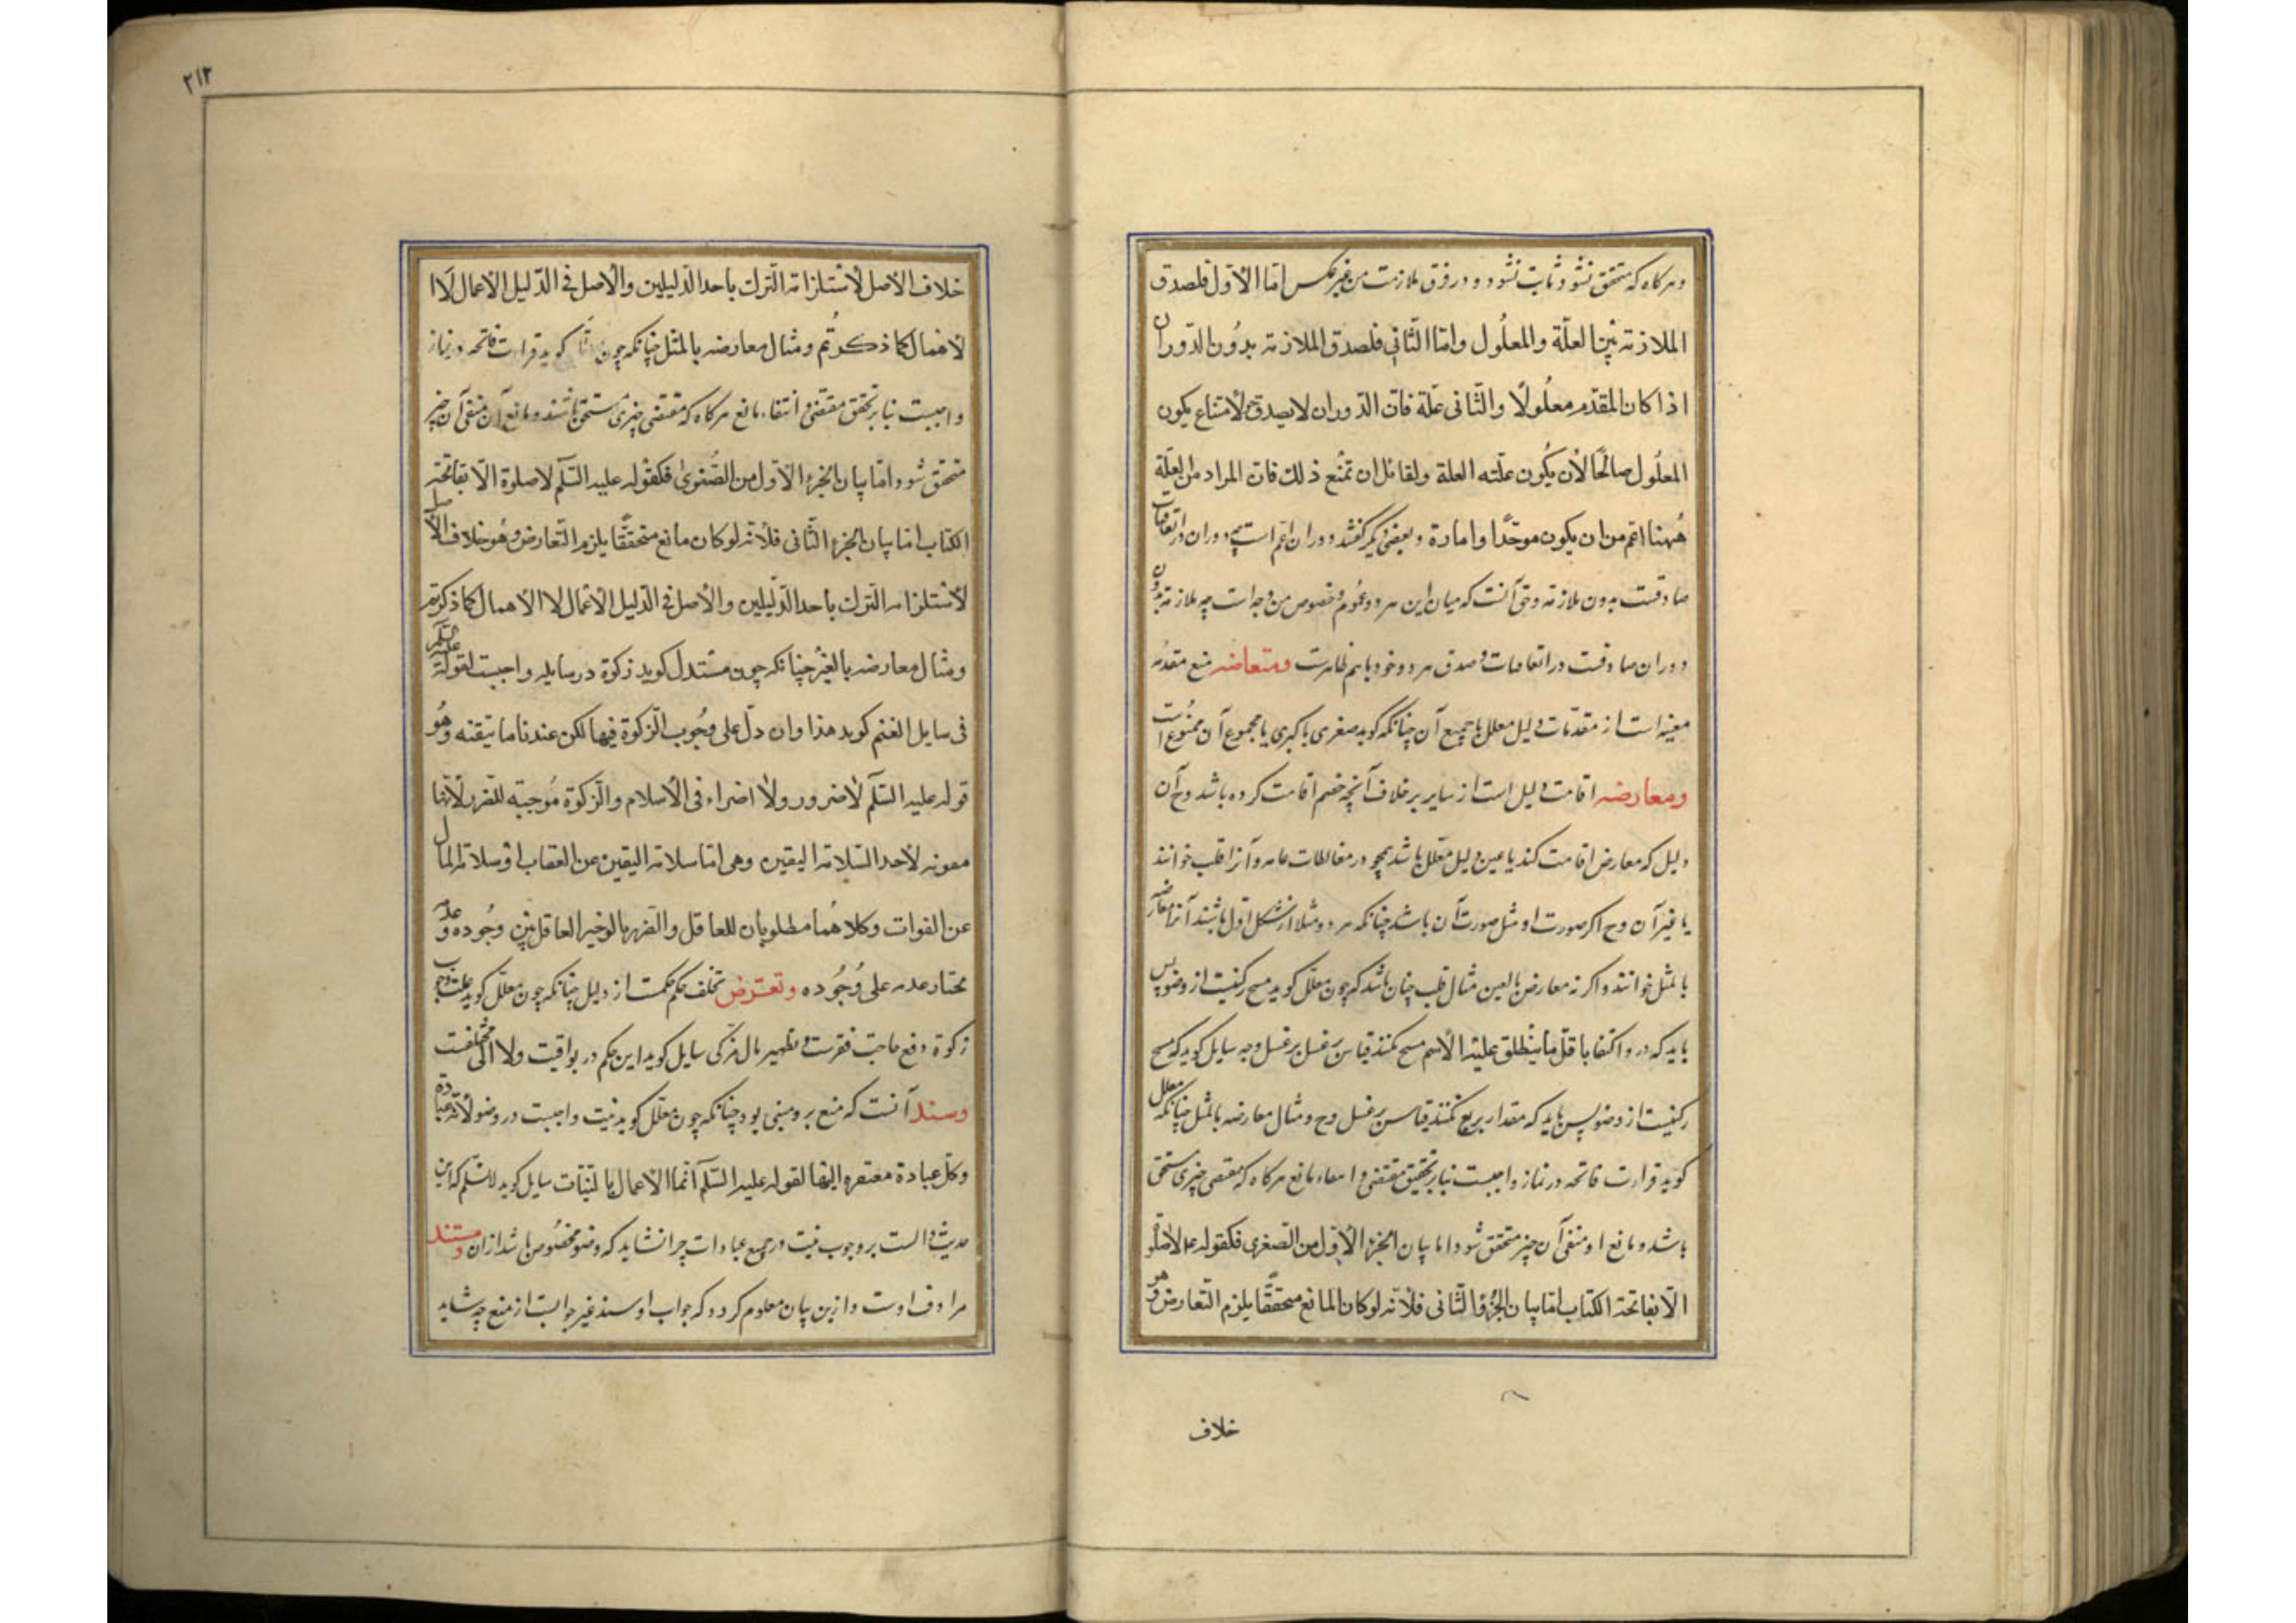 و هرگاه که متحقق نشود ثابت نشود و در فرق ملازمت من غیر عکس اما الاول فلصدق
الملازمة بین العلة والمعلول واما الثانی فلصدق الملازمة بدون الدوران
اذا کان المقدم معلولا والثانی علة فان الدوران لا یصدق لامتناع یکون
المعلول صالحا لأن یکون علته العلة ولقائل ان تمنع ذلك فان المراد من العلة
ههنا اعم من ان یکون موجدا و امارة و بعضی دیگر گفتند دوران اعم است چه دوران در اتفاقیات
صادقست بدون ملازمة و حق آنست که میان این هر دو عموم و خصوص من وجه است چه ملازمة بدون
دوران صادقست در اتفاقیات و صدق هر دو خود باهم ظاهرست و مناقضه منع مقدمه
معینه است از مقدمات دلیل معلل یا جمیع آن چنانکه گوید صغری یا کبری یا مجموع آن ممنوع است
ومعارضه اقامت دلیل است از سایر بر خلاف آنچه خصم اقامت کرده باشد و ح آن
دلیل که معارض اقامت کند یا عین دلیل معلل باشد همچو در مغالطات عامه و آنرا قلب خوانند
یا غیر آن و ح اگر صورت او مثل صورت آن باشد چنانکه هر دو مثلا از شکل اول باشند آنرا معارضه
بالمثل خوانند و اگر نه معارض بالعین مثال قلب چنان باشد که چون معلل گوید مسح رکنیست از وضو پس
باید که در و اکتفا باقل ما ینطلق علیه الاسم مسح نکنند قیاس بر غسل وجه سایل گوید که مسح
رکنیست از وضو پس باید که مقدار بربع نکنند قیاس بر غسل وح و مثال معارضه بالمثل چنانکه معلل
گوید قرات فاتحه در نماز واجبست بنابر تحقیق مقتضی و امعاء مانع هرگاه که مقتضی چیزی متحقق
باشد و مانع او منفی آن چیز متحقق شود اما بیان الجزء الاول من الصغری فکقوله عم لا صلوة
الا بفاتحة الکتاب اما بیان الجزؤ الثانی فلأنه لو کان المانع متحققا یلزم التعارض و هو
خلاف
۲۱۲
خلاف الاصل لاستلزامه الترك باحد الدلیلین والاصل فی الدلیل الاعمال لا ا
لاهمال کما ذکرتم ومثال معارضه بالمثل چنانکه چون گوید قرات فاتحه در نماز
واجبست بنابر تحقق مقتضی و انتفاء مانع هرگاه که مقتضی چیزی متحقق باشند و مانع آن منفی آن چیز
متحقق شود اما بیان الجزء الاول من الصغری فکقوله علیه السلم لا صلوة الا بفاتحة
الکتاب اما بیان الجزء الثانی فلأنه لو کان مانع متحققا یلزم التعارض وهو خلاف الاصل
لاستلزامه الترك باحد الدلیلین والاصل فی الدلیل الاعمال لا الاهمال کما ذکرتم
ومثال معارضه بالغیر چنانکه چون مستدل گوید زکوة در سایله واجبست لقوله علیه السلم
فی سایل الغنم گوید هذا وان دل علی وجوب الزکوة فیها لکن عندنا ما یتقنه وهو
قوله علیه السلم لا ضرور ولا اضراء فی الاسلام والزکوة موجبة للضرر لأنها
معونة لاحد السلامة الیقین وهی اما سلامة الیقین عن العقاب او سلامة المال
عن الفوات وکلاهما مطلوبان للعاقل والضرر بالوخیر العاقل بین وجوده وعدمه
مختار عدمه علی وجوده وتعترض تخلف حکم حکمت از دلیل چنانکه چون معلل گوید علت وجوب
زکوة دفع حاجت فقرست و تطهیر مال مزکی سایل گوید این حکم در یواقیت و لا الی متخلفست
وسند آنست که منع بر و مبنی بود چنانکه چون معلل گوید نیت واجبست در وضو لانه عبادة
وکل عبادة مفتقرة الیها لقوله علیه السلم انما الاعمال بالنیات سایل گوید لا نسلم که این
حدیث دالست بر وجوب نیت در جمیع عبادات چرا نشاید که وضو مخصوص باشد از ان و مستند
مرادف اوست و ازین بیان معلوم کردد که جواب او سند غیر جوابست از منع چه شاید